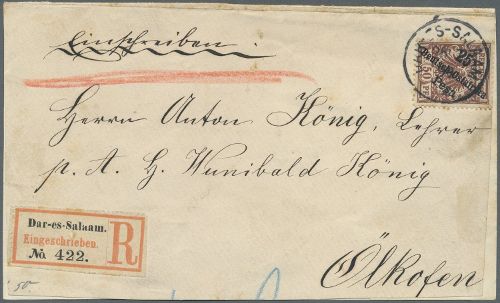 Einschreiben.
Herrn Anton König, Lehrer
p. A. H. Wunibald König
Ölkofen
Dar-es-Salaam.
Eingeschrieben.
No 422.
R
50